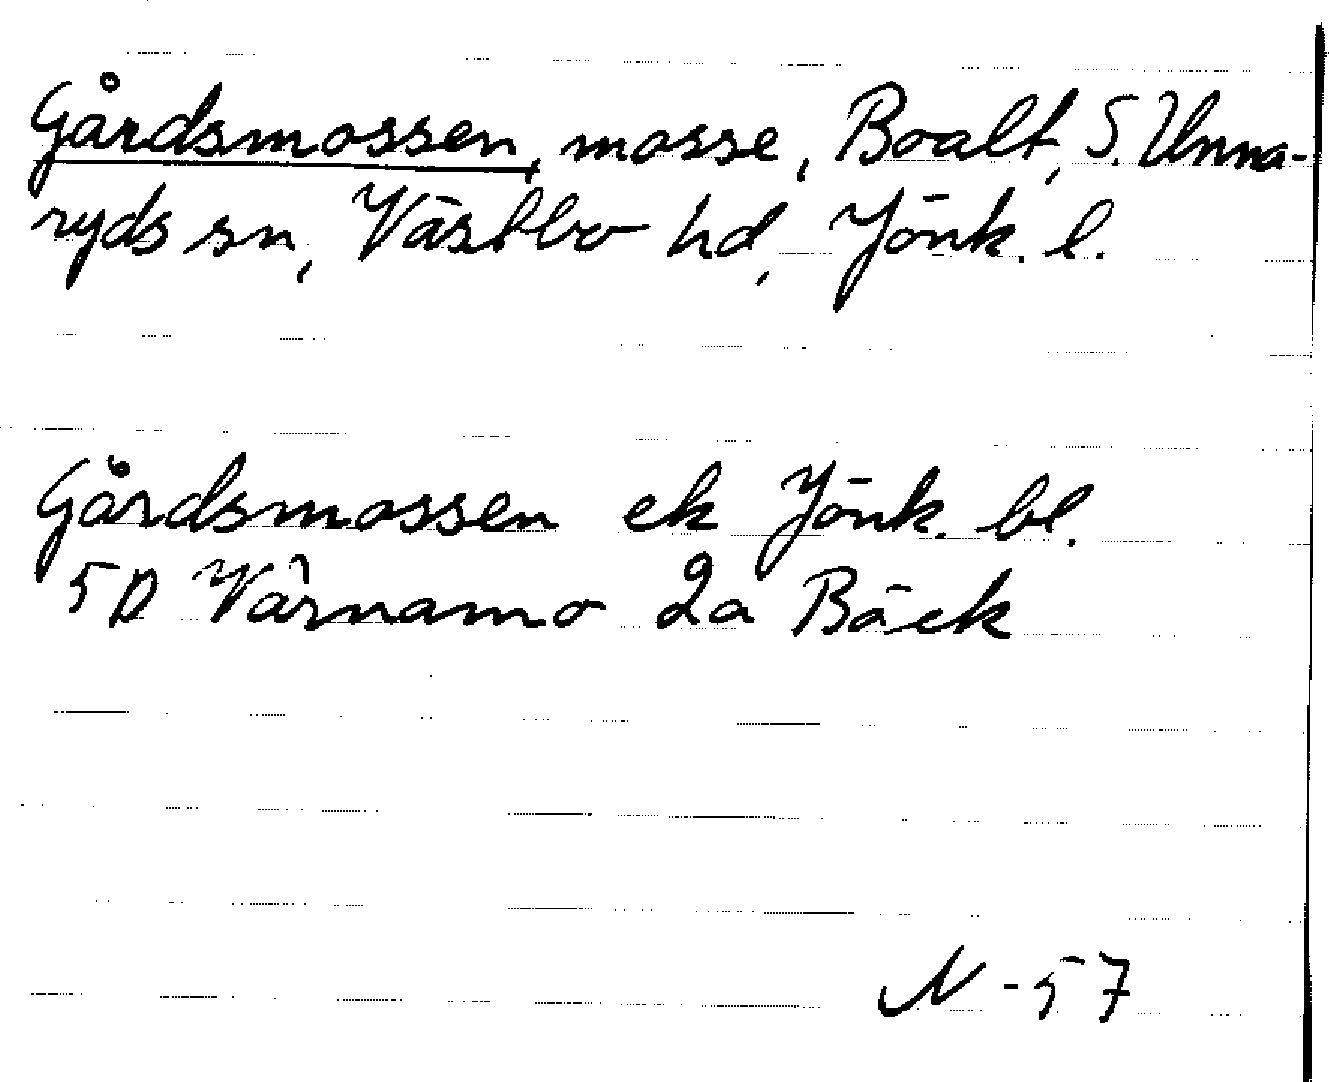 Gårdsmossen, mosse, Boalt, S. Unna-
ryds sn, Västbo hd, Jönk. l.
Gårdsmossen ek Jönk. bl.
5D Värnamo 2a Bäck
N-57